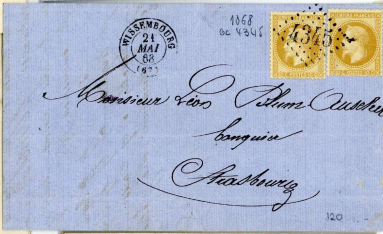 WISSEMBOURG
21
MAI
68
(67)
1868
GC 4345
4345
Monsieur Léon Blum Auscher
banquier
Strasbourg
120